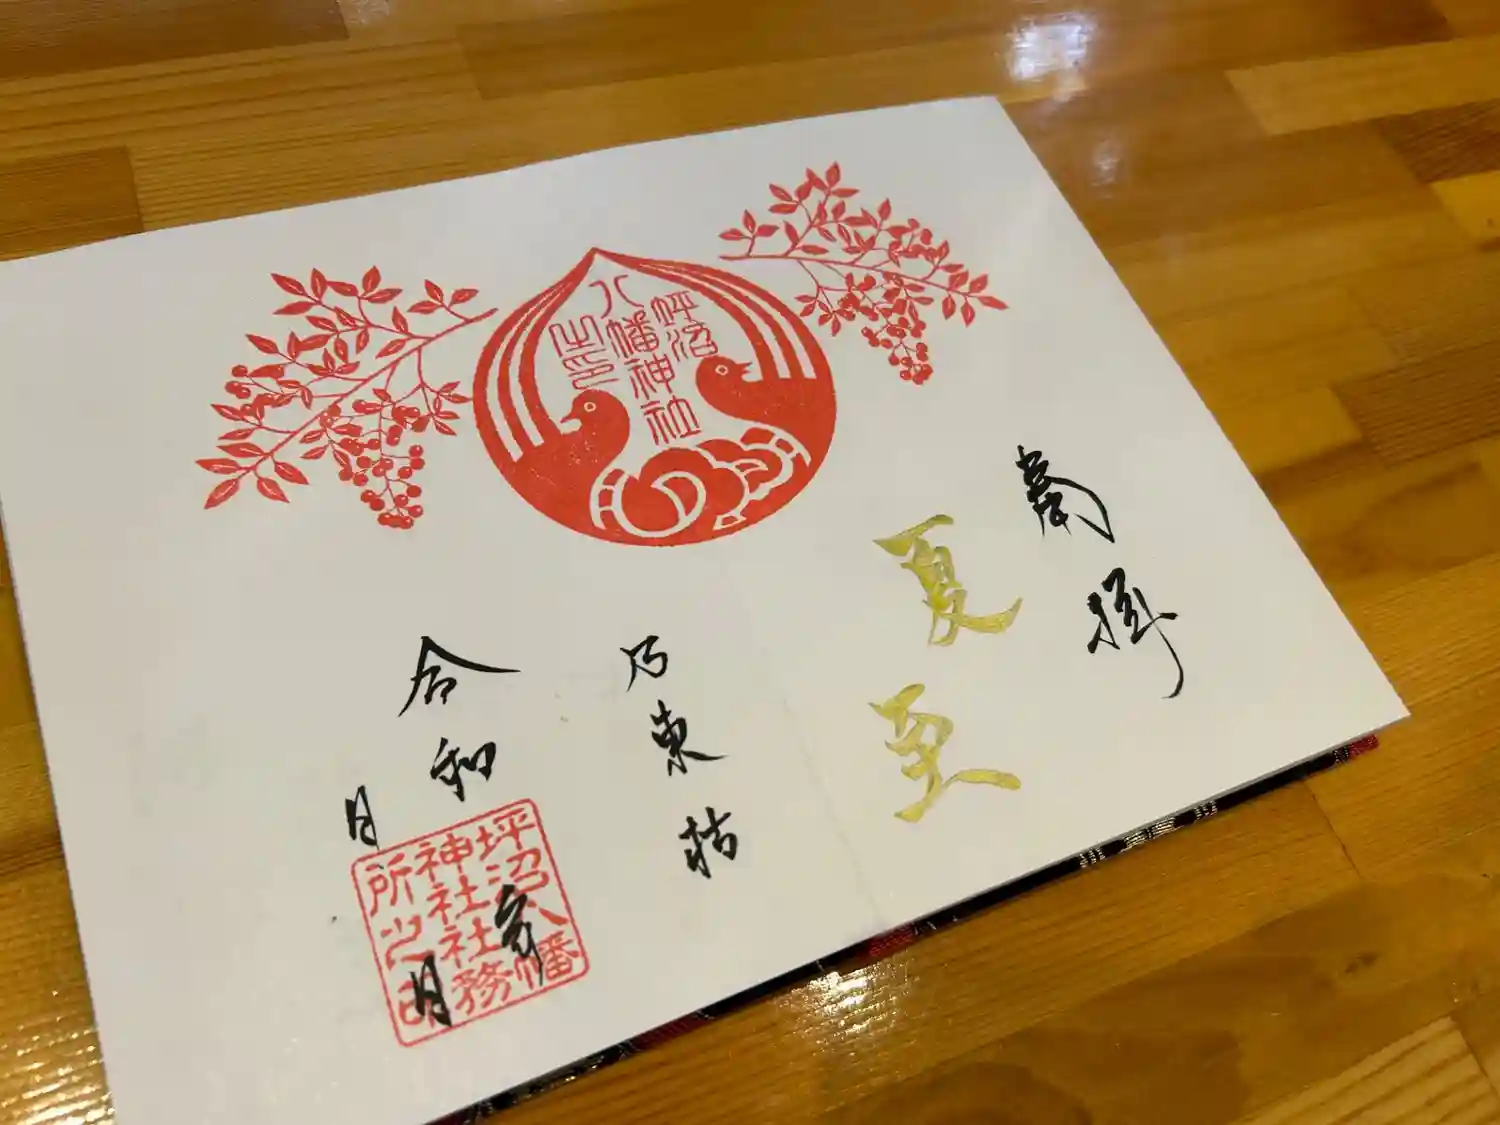 奉拝
夏至
乃東枯
令和 年
月 日
坪沼
八幡神社
之印
坪沼八幡
神社社務
所之印